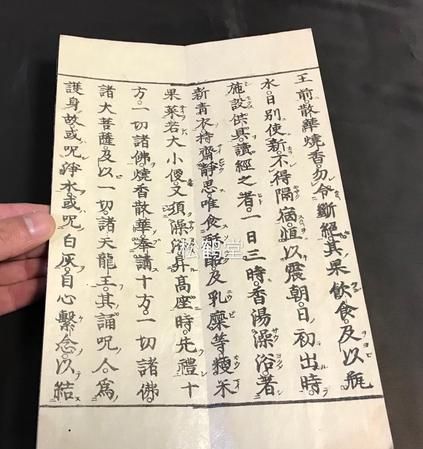 王前散華燒香勿令斷絕其果飲食及以瓶
水日別使新不得隔宿道以震朝日初出時
施設供具讀經之者一日三時香湯澡浴著
新青衣持齋靜思唯食酥酪及乳糜等粳米
果菜若大小便又須澡浴昇高座時先禮十
方一切諸佛燒香散華奉請十方一切諸佛
諸大菩薩及以一切諸天龍王其誦呪人為
護身故或呪淨水或呪白灰自心繫念以結
松鶴堂